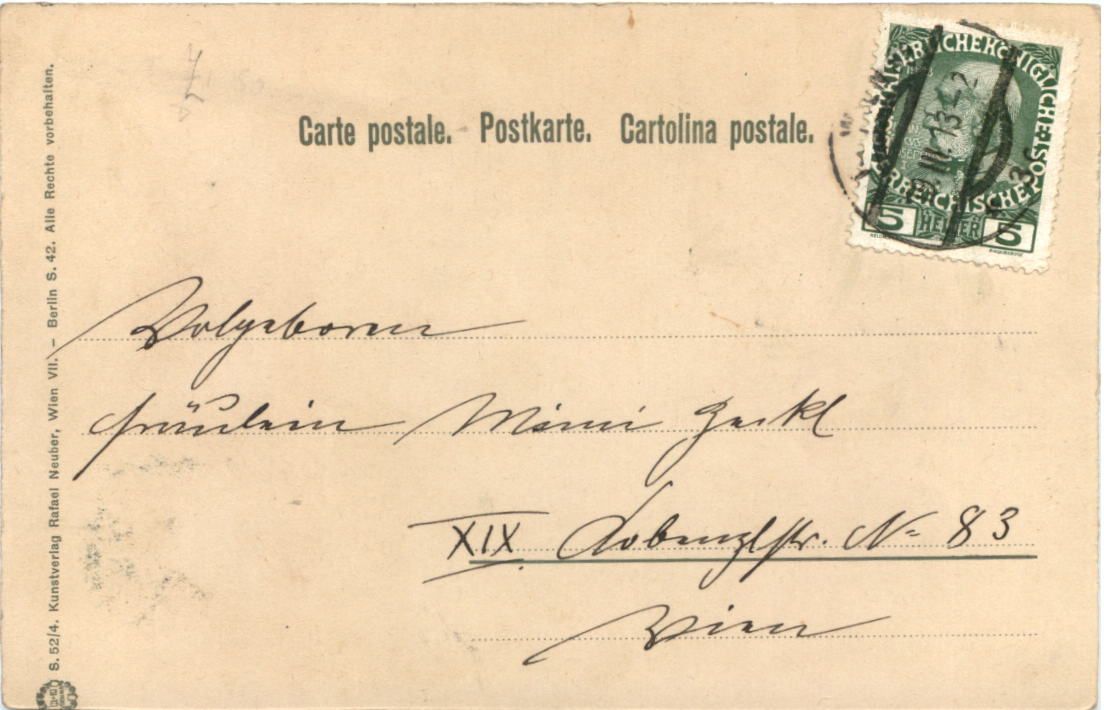 Carte postale. Postkarte. Cartolina postale.
KAISERLICHE KÖNIGLICHE ÖSTERREICHISCHE POST
5 HELLER 5
WIEN
III. 13
Wolgeboren
Fräulein Mimi
XIX. Kobenzlstr. No 83
Wien
S. 52/4. Kunstverlag Rafael Neuber, Wien VII. – Berlin S. 42. Alle Rechte vorbehalten.